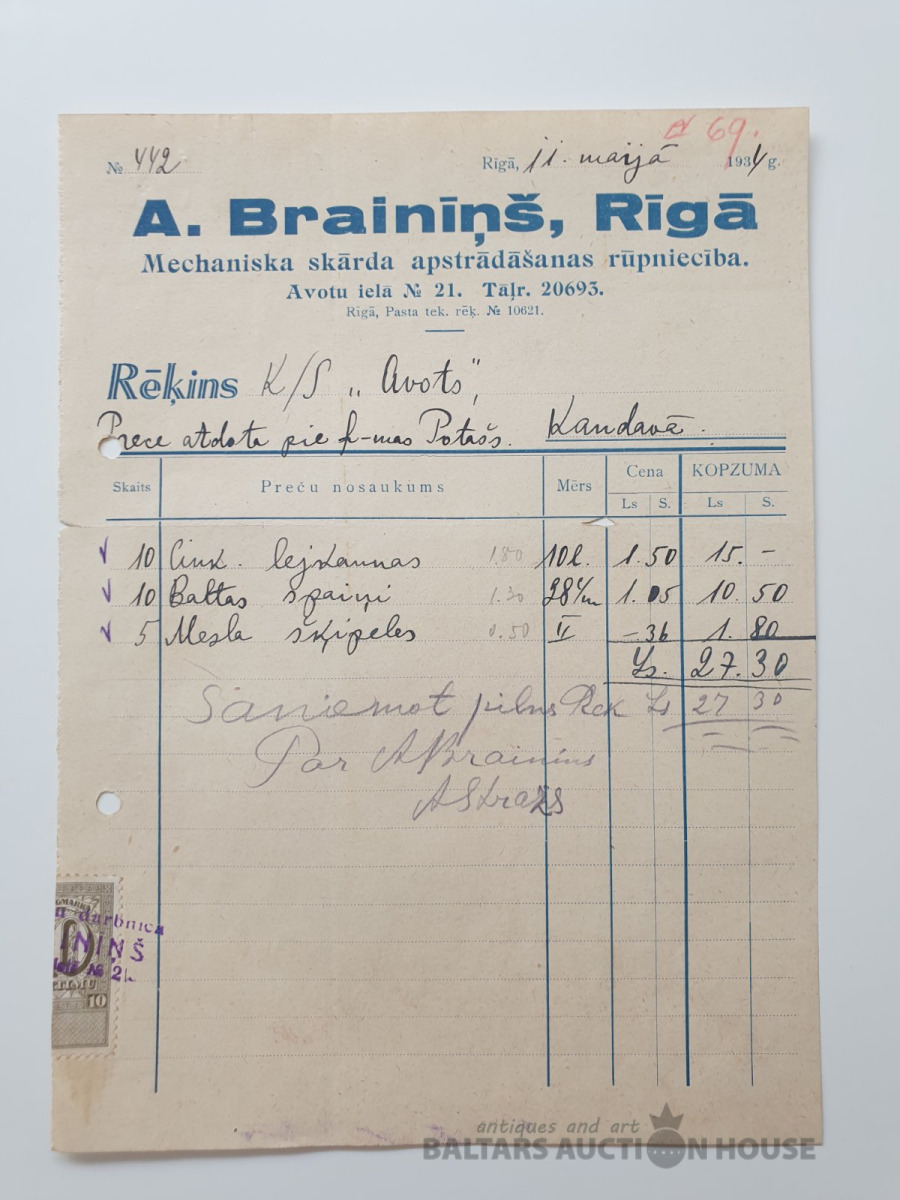 № 442 Rīgā, 11. maijā 1934 g.
69.
A. Brainīņš, Rīgā
Mechaniska skārda apstrādāšanas rūpniecība.
Avotu ielā № 21. Tāļr. 20693.
Rīgā, Pasta tek. rēķ. № 10621.
Rēķins K/S „Avots",
Prece atdota pie f-mas Potašs. Kandavā.
Skaits Preču nosaukums Mērs Cena KOPZUMA
Ls S. Ls S.
10 Cink. lejkannas 1.80 10 l. 1.50 15.-
10 Baltas spaiņi 1.30 28 c/m 1.05 10.50
5 Mesla šķipeles 0.50 II -36 1.80
Ls. 27.30
Saņemot pilns Rek Ls 27 30
Par A Brainins
darbnica
INIŅŠ
№ 21.
10
antiques and art
BALTARS AUCTION HOUSE